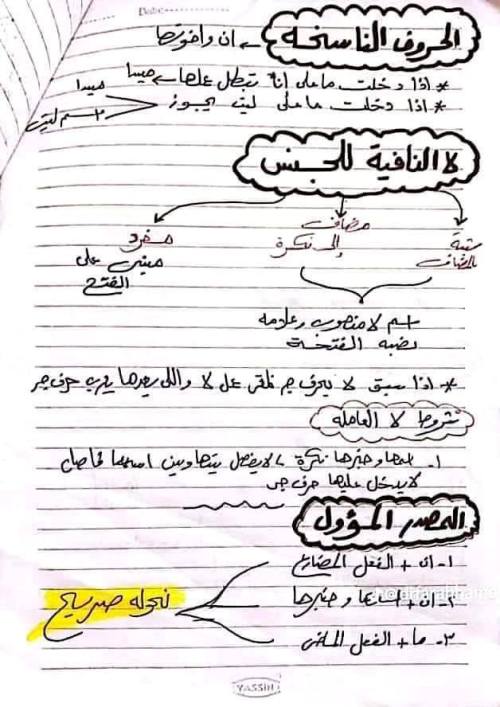 Date:
الحروف الناسخة ← ان واخوتها
* اذا دخلت ما على انا تبطل علها ← مبتدا
* اذا دخلت ما على ليت يجوز
مبتدا
اسم ليت
لا النافية للجنس
شبة بالمضاف
مضاف إلى نكرة
مفرد
مبنى على الفتح
اسم لا منصوب وعلامه
نصبه الفتحة
* اذا سبق لا بحرف جر تلقى عمل لا واللى بعدها يعرب حرف جر
شروط لا العامله
١- اسمها وخبرها نكرة ٢- لا يفصل بينها وبين اسمها فاصل
لا يدخل عليها حرف جر
المصدر المؤول
١- ان + الفعل المضارع
٢- ان + اسمها وخبرها
٣- ما + الفعل الماضى
نحوله صريح
YASSIN